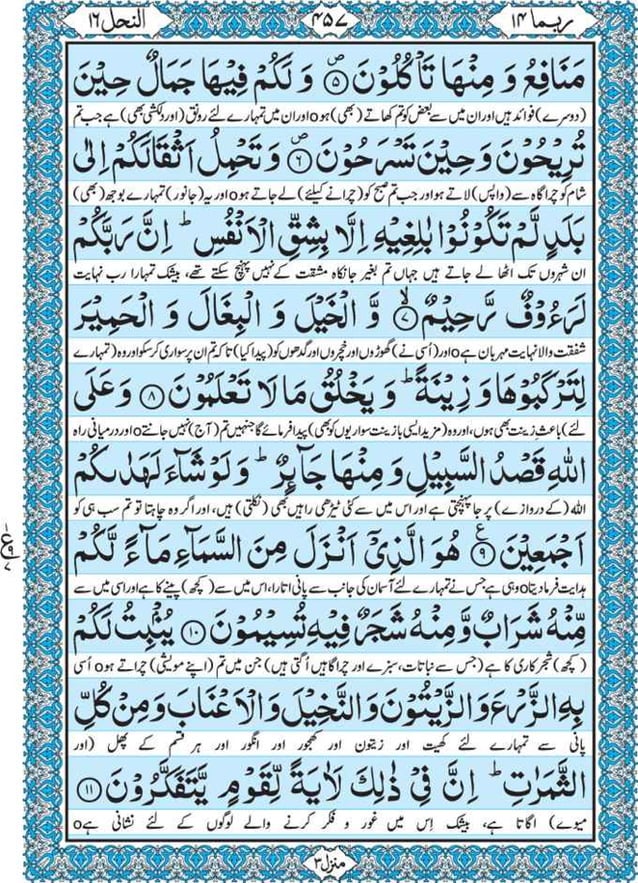 ربما ١٤
٤٥٧
النحل ١٦
مَنَافِعُ وَ مِنْهَا تَاْكُلُوْنَ ۪﴿۵﴾ وَ لَكُمْ فِیْهَا جَمَالٌ حِیْنَ
(دوسرے) فوائد ہیں اور ان میں سے بعض کو تم کھاتے (بھی) ہوo اور ان میں تمہارے لئے رونق (اور دلکشی بھی) ہے جب تم
تُرِیْحُوْنَ وَ حِیْنَ تَسْرَحُوْنَ ۪﴿۶﴾ وَ تَحْمِلُ اَثْقَالَكُمْ اِلٰی
شام کو چراگاہ سے (واپس) لاتے ہو اور جب تم صبح کو (چرانے کیلئے) لے جاتے ہوo اور یہ (جانور) تمہارے بوجھ (بھی)
بَلَدٍ لَّمْ تَكُوْنُوْا بٰلِغِیْهِ اِلَّا بِشِقِّ الْاَنْفُسِ ؕ اِنَّ رَبَّكُمْ
ان شہروں تک اٹھا لے جاتے ہیں جہاں تم بغیر جانکاہ مشقت کے نہیں پہنچ سکتے تھے، بیشک تمہارا رب نہایت
لَرَءُوْفٌ رَّحِیْمٌ ۙ﴿۷﴾ وَّ الْخَیْلَ وَ الْبِغَالَ وَ الْحَمِیْرَ
شفقت والا نہایت مہربان ہےo اور (اُسی نے) گھوڑوں اور خچروں اور گدھوں کو (پیدا کیا) تاکہ تم ان پر سواری کر سکو اور وہ (تمہارے
لِتَرْكَبُوْهَا وَ زِیْنَةً ؕ وَ یَخْلُقُ مَا لَا تَعْلَمُوْنَ ﴿۸﴾ وَ عَلَی
لئے) باعثِ زینت بھی ہوں، اور وہ (مزید ایسی بازینت سواریوں کو بھی) پیدا فرمائے گا جنہیں تم (آج) نہیں جانتےo اور درمیانی راہ
اللّٰهِ قَصْدُ السَّبِیْلِ وَ مِنْهَا جَآىِٕرٌ ؕ وَ لَوْ شَآءَ لَهَدٰىكُمْ
اللہ (کے دروازے) پر جا پہنچتی ہے اور اس میں سے کئی ٹیڑھی راہیں بھی (نکلتی) ہیں، اور اگر وہ چاہتا تو تم سب ہی کو
اَجْمَعِیْنَ ﴿۹﴾ هُوَ الَّذِیْۤ اَنْزَلَ مِنَ السَّمَآءِ مَآءً لَّكُمْ
ہدایت فرما دیتاo وہی ہے جس نے تمہارے لئے آسمان کی جانب سے پانی اتارا، اس میں سے (کچھ) پینے کا ہے اور اسی میں سے
مِّنْهُ شَرَابٌ وَّ مِنْهُ شَجَرٌ فِیْهِ تُسِیْمُوْنَ ﴿۱۰﴾ یُنْۢبِتُ لَكُمْ
(کچھ) شجر کاری کا ہے (جس سے نباتات، سبزے اور چراگاہیں اُگتی ہیں) جن میں تم (اپنے مویشی) چراتے ہوo اُسی
بِهِ الزَّرْعَ وَ الزَّیْتُوْنَ وَ النَّخِیْلَ وَ الْاَعْنَابَ وَ مِنْ كُلِّ
پانی سے تمہارے لئے کھیت اور زیتون اور کھجور اور انگور اور ہر قسم کے پھل (اور
الثَّمَرٰتِ ؕ اِنَّ فِیْ ذٰلِكَ لَاٰیَةً لِّقَوْمٍ یَّتَفَكَّرُوْنَ ﴿۱۱﴾
میوے) اگاتا ہے، بیشک اِس میں غور و فکر کرنے والے لوگوں کے لئے نشانی ہےo
منزل ٣